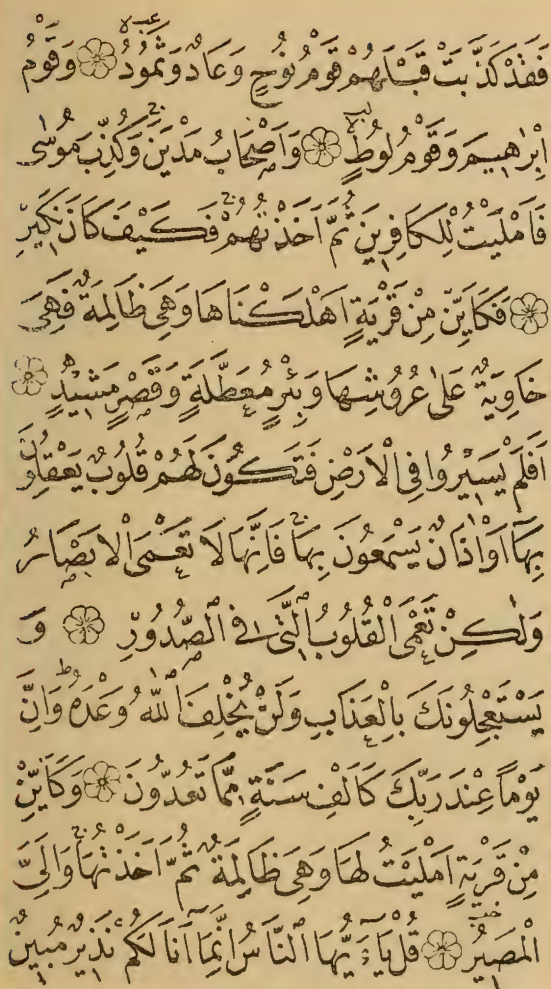 فَقَدْ كَذَّبَتْ قَبْلَهُمْ قَوْمُ نُوحٍ وَعَادٌ وَثَمُودُ ۝ وَقَوْمُ
اِبْرٰهِيمَ وَقَوْمُ لُوطٍ ۝ وَاَصْحَابُ مَدْيَنَ وَكُذِّبَ مُوسٰى
فَاَمْلَيْتُ لِلْكَافِرِينَ ثُمَّ اَخَذْتُهُمْ فَكَيْفَ كَانَ نَكِيرِ
۝ فَكَاَيِّنْ مِنْ قَرْيَةٍ اَهْلَكْنَاهَا وَهِيَ ظَالِمَةٌ فَهِيَ
خَاوِيَةٌ عَلٰى عُرُوشِهَا وَبِئْرٍ مُعَطَّلَةٍ وَقَصْرٍ مَشِيدٍ ۝
اَفَلَمْ يَسِيرُوا فِى الْاَرْضِ فَتَكُونَ لَهُمْ قُلُوبٌ يَعْقِلُونَ
بِهَآ اَوْ اٰذَانٌ يَسْمَعُونَ بِهَا فَاِنَّهَا لَا تَعْمَى الْاَبْصَارُ
وَلٰكِنْ تَعْمَى الْقُلُوبُ الَّتِى فِى الصُّدُورِ ۝ وَ
يَسْتَعْجِلُونَكَ بِالْعَذَابِ وَلَنْ يُخْلِفَ اللّٰهُ وَعْدَهُ وَاِنَّ
يَوْمًا عِنْدَ رَبِّكَ كَاَلْفِ سَنَةٍ مِمَّا تَعُدُّونَ ۝ وَكَاَيِّنْ
مِنْ قَرْيَةٍ اَمْلَيْتُ لَهَا وَهِيَ ظَالِمَةٌ ثُمَّ اَخَذْتُهَا وَاِلَىَّ
الْمَصِيرُ ۝ قُلْ يَآ اَيُّهَا النَّاسُ اِنَّمَآ اَنَا لَكُمْ نَذِيرٌ مُبِينٌ